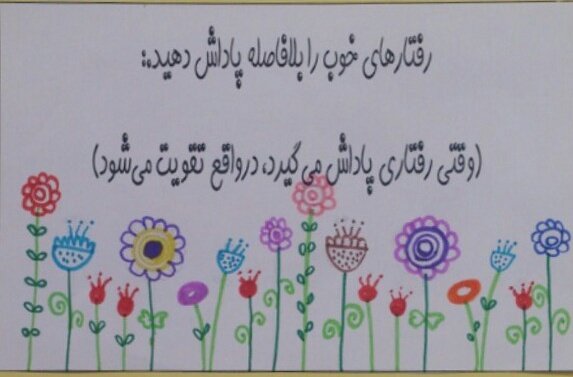 رفتارهای خوب را بلافاصله پاداش دهید.:
(وقتی رفتاری پاداش می‌گیرد، در واقع تقویت می‌شود)